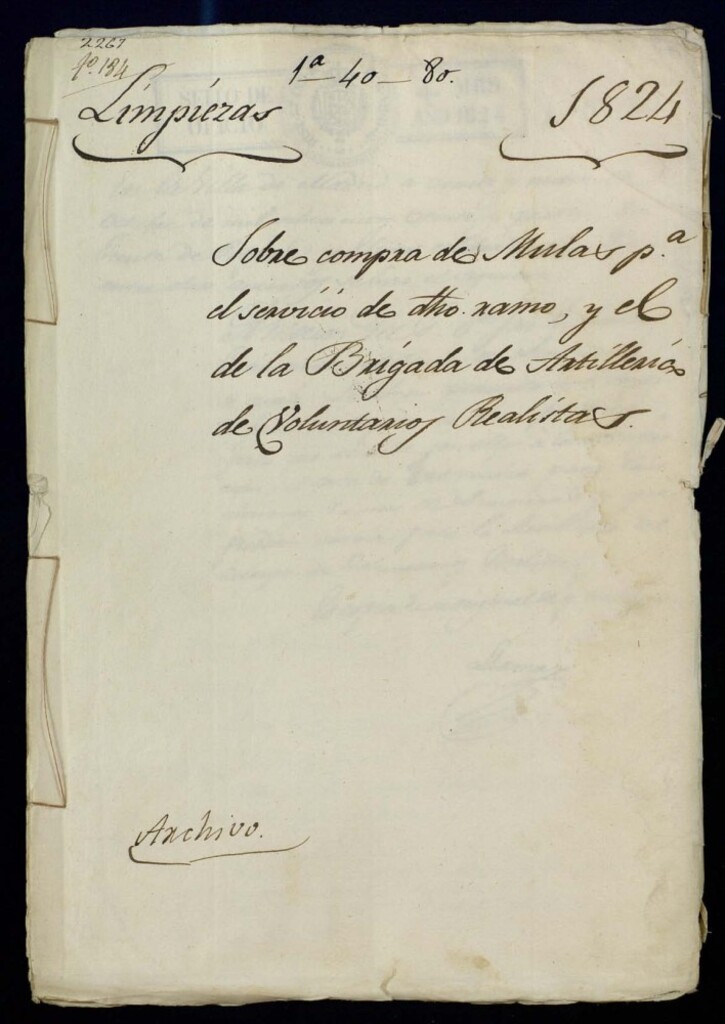 2267
nº. 184
1ª - 40 - 80.
Limpiezas
1824
Sobre compra de Mulas p.ª
el servicio de dho. ramo, y el
de la Brigada de Artilleria
de Voluntarios Realistas.
Archivo.